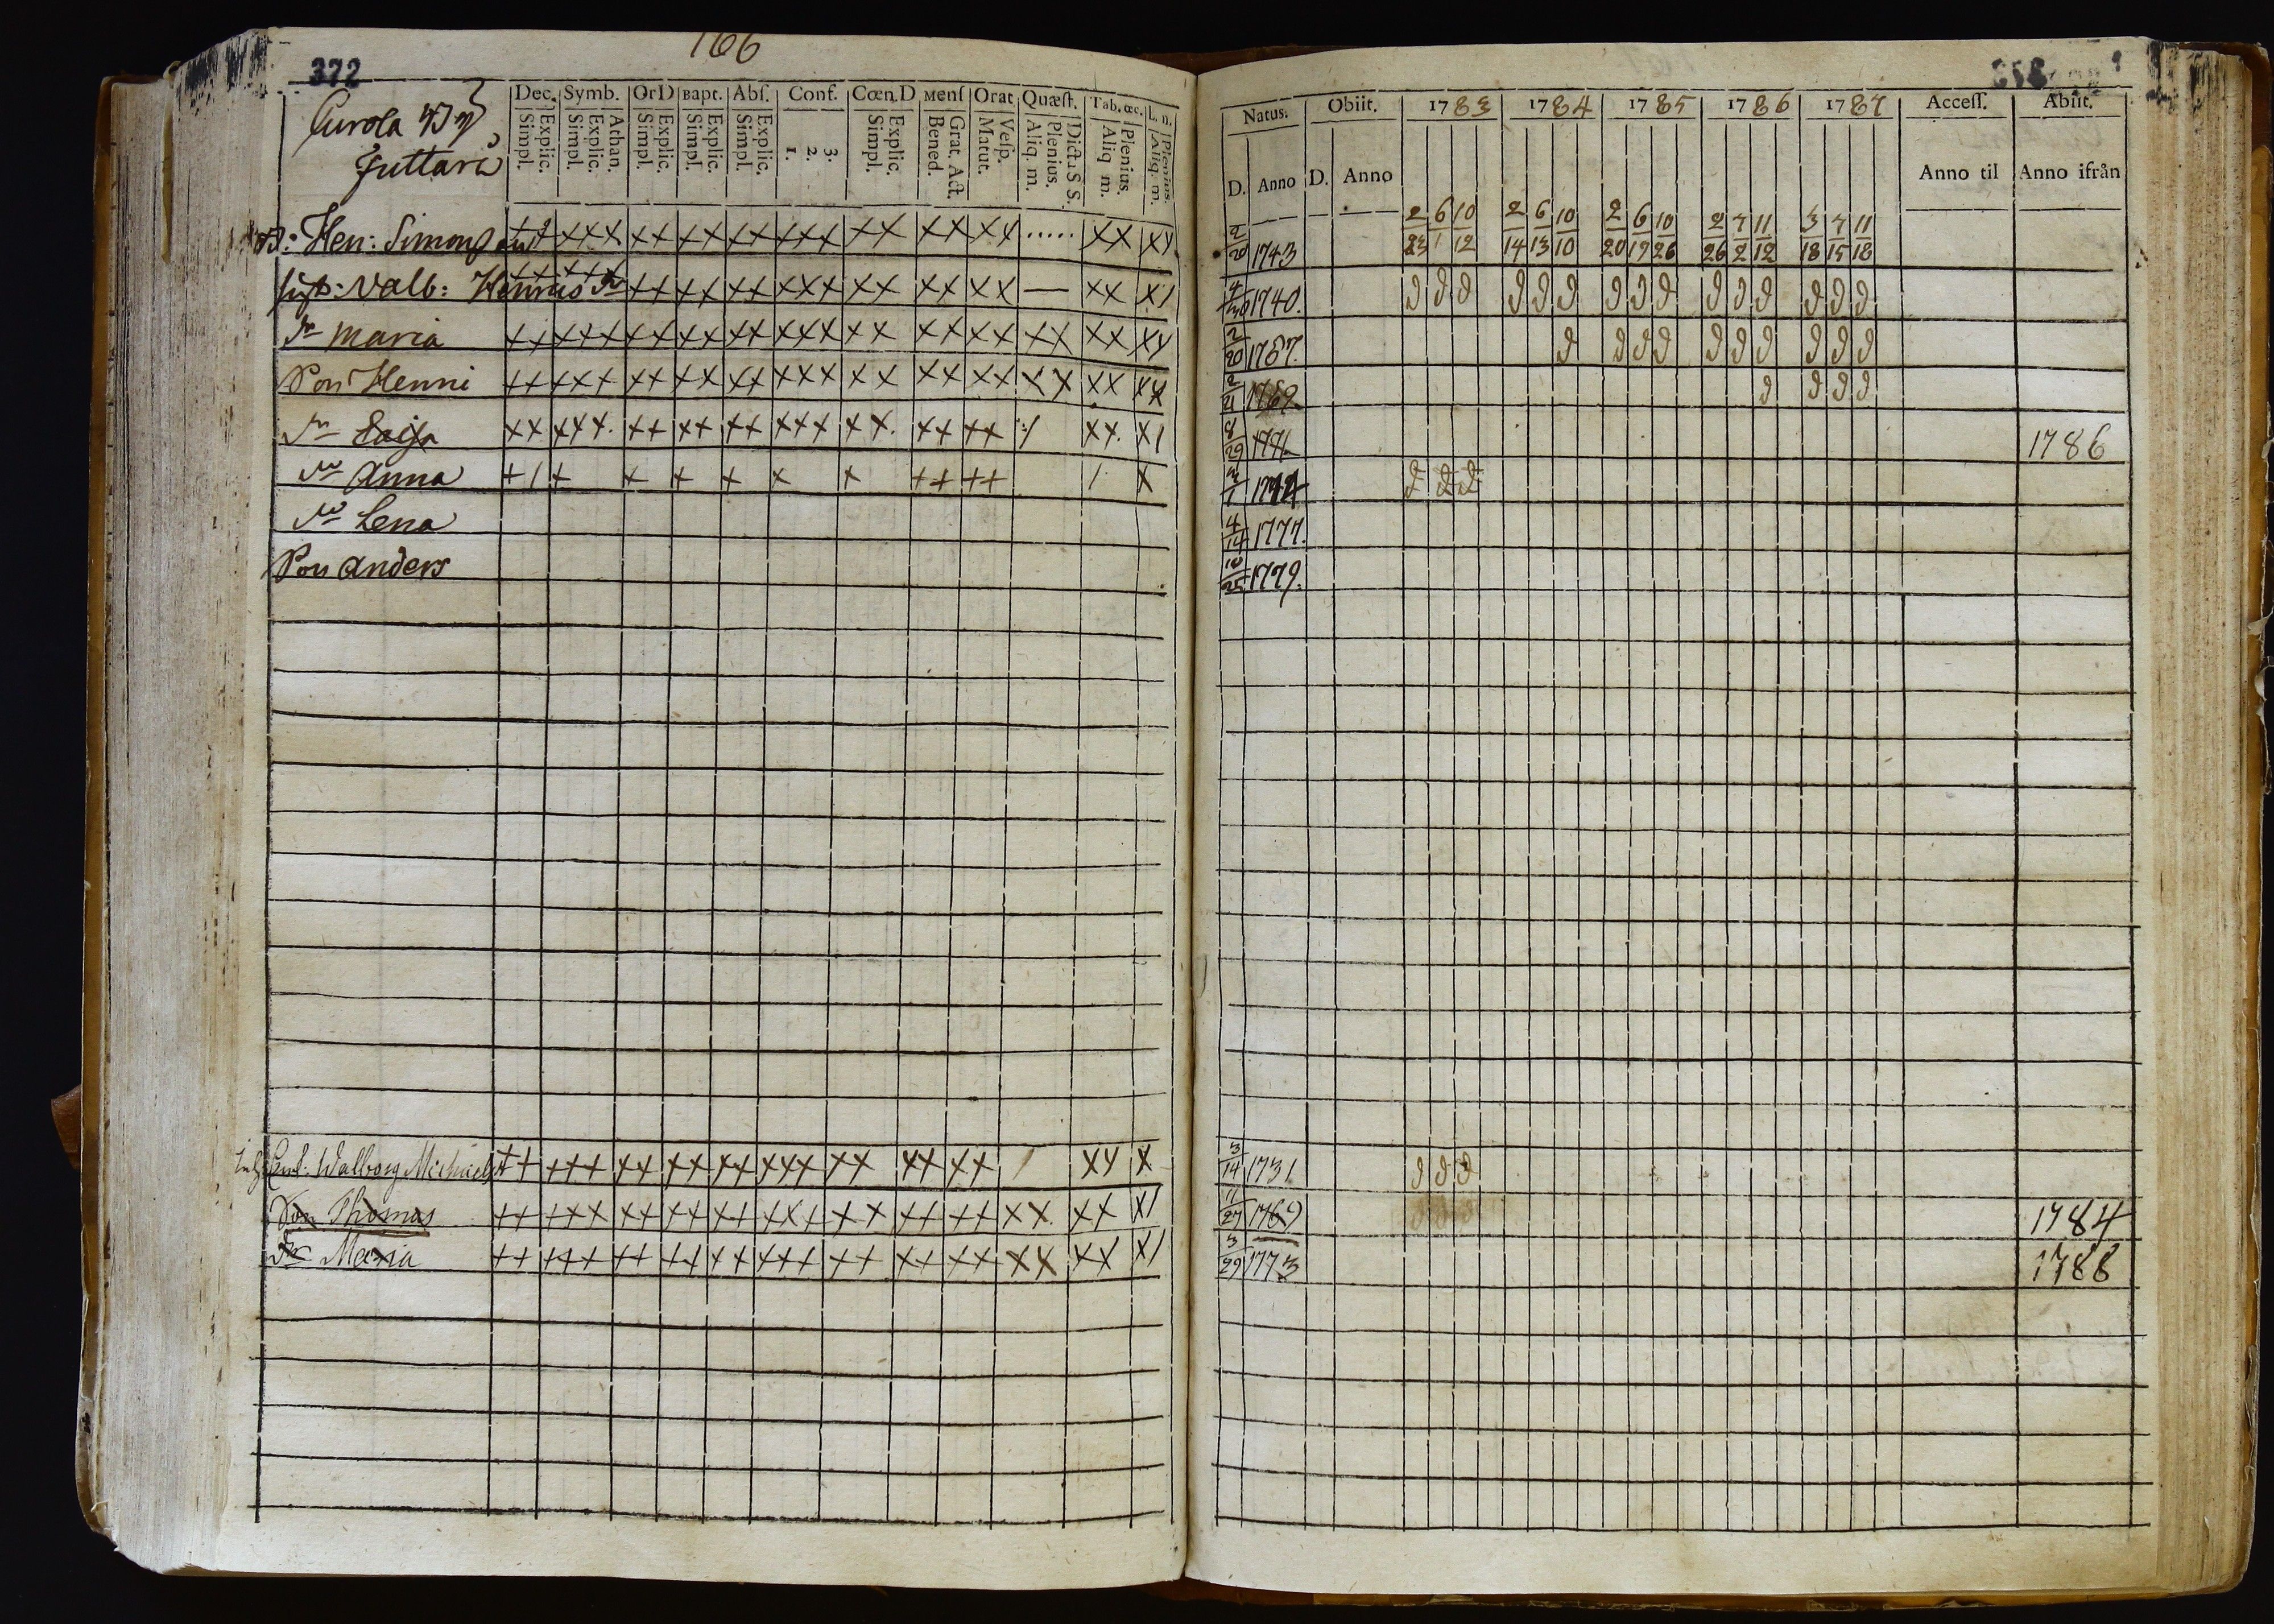 166
372
Dec. Symb. OrD Bapt. Abſ. Conf. Cœn.D Menſ Orat Quæſt. Tab. œc. L. n.
Explic. Simpl. Athan. Explic. Simpl. Explic. Simpl. Explic. Simpl. Explic. Simpl. 3. 2. 1. Explic. Simpl. Grat. Act. Bened. Veſp. Matut. Dict. S S. Plenius. Aliq. m. Plenius. Aliq m. Plenius. Aliq. m.
Curola
Juttari
Natus. Obiit. 1783 1784 1785 1786 1787 Acceſſ. Abiit.
D. Anno D. Anno Anno til Anno ifrån
2/23 6/1 10/12 2/14 6/13 10/10 2/20 6/19 10/26 2/26 7/2 11/12 3/18 7/15 11/18
B: Hen: Simonſ 2/20 1743
hust: Valb: Henricsdr 1740.
dr Maria 2/20 1767.
Son Henni 2/21 1769
dr Caisa 8/29 1771 1786
dr Anna 1774
dr Lena 4/14 1777.
Son Anders 10/25 1779.
Inh: Enk. Walborg Michaelsd 3/14 1731
Son Thomas 11/27 1769 1784
dr Maria 3/29 1773 1788